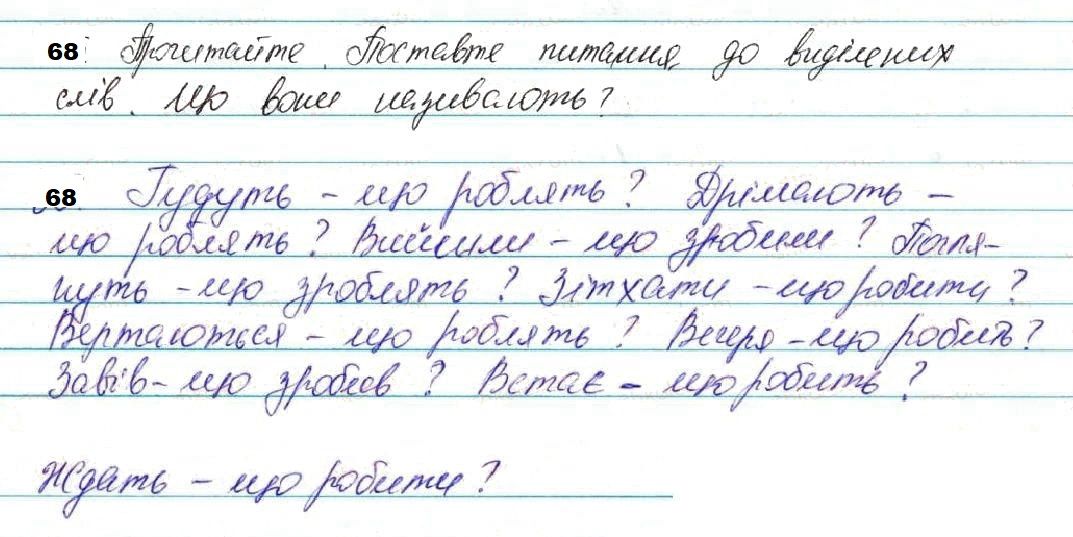 68 Прочитайте. Поставте питання до виділених
слів. Що вони називають?
68 Гудуть - що роблять? Дрімають -
що роблять? Вийшли - що зробили? Погля-
нуть - що зроблять? Зітхати - що робити?
Вертаються - що роблять? Вечеря - що робить?
Завів - що зробив? Встає - що робить?
Ждать - що робити?